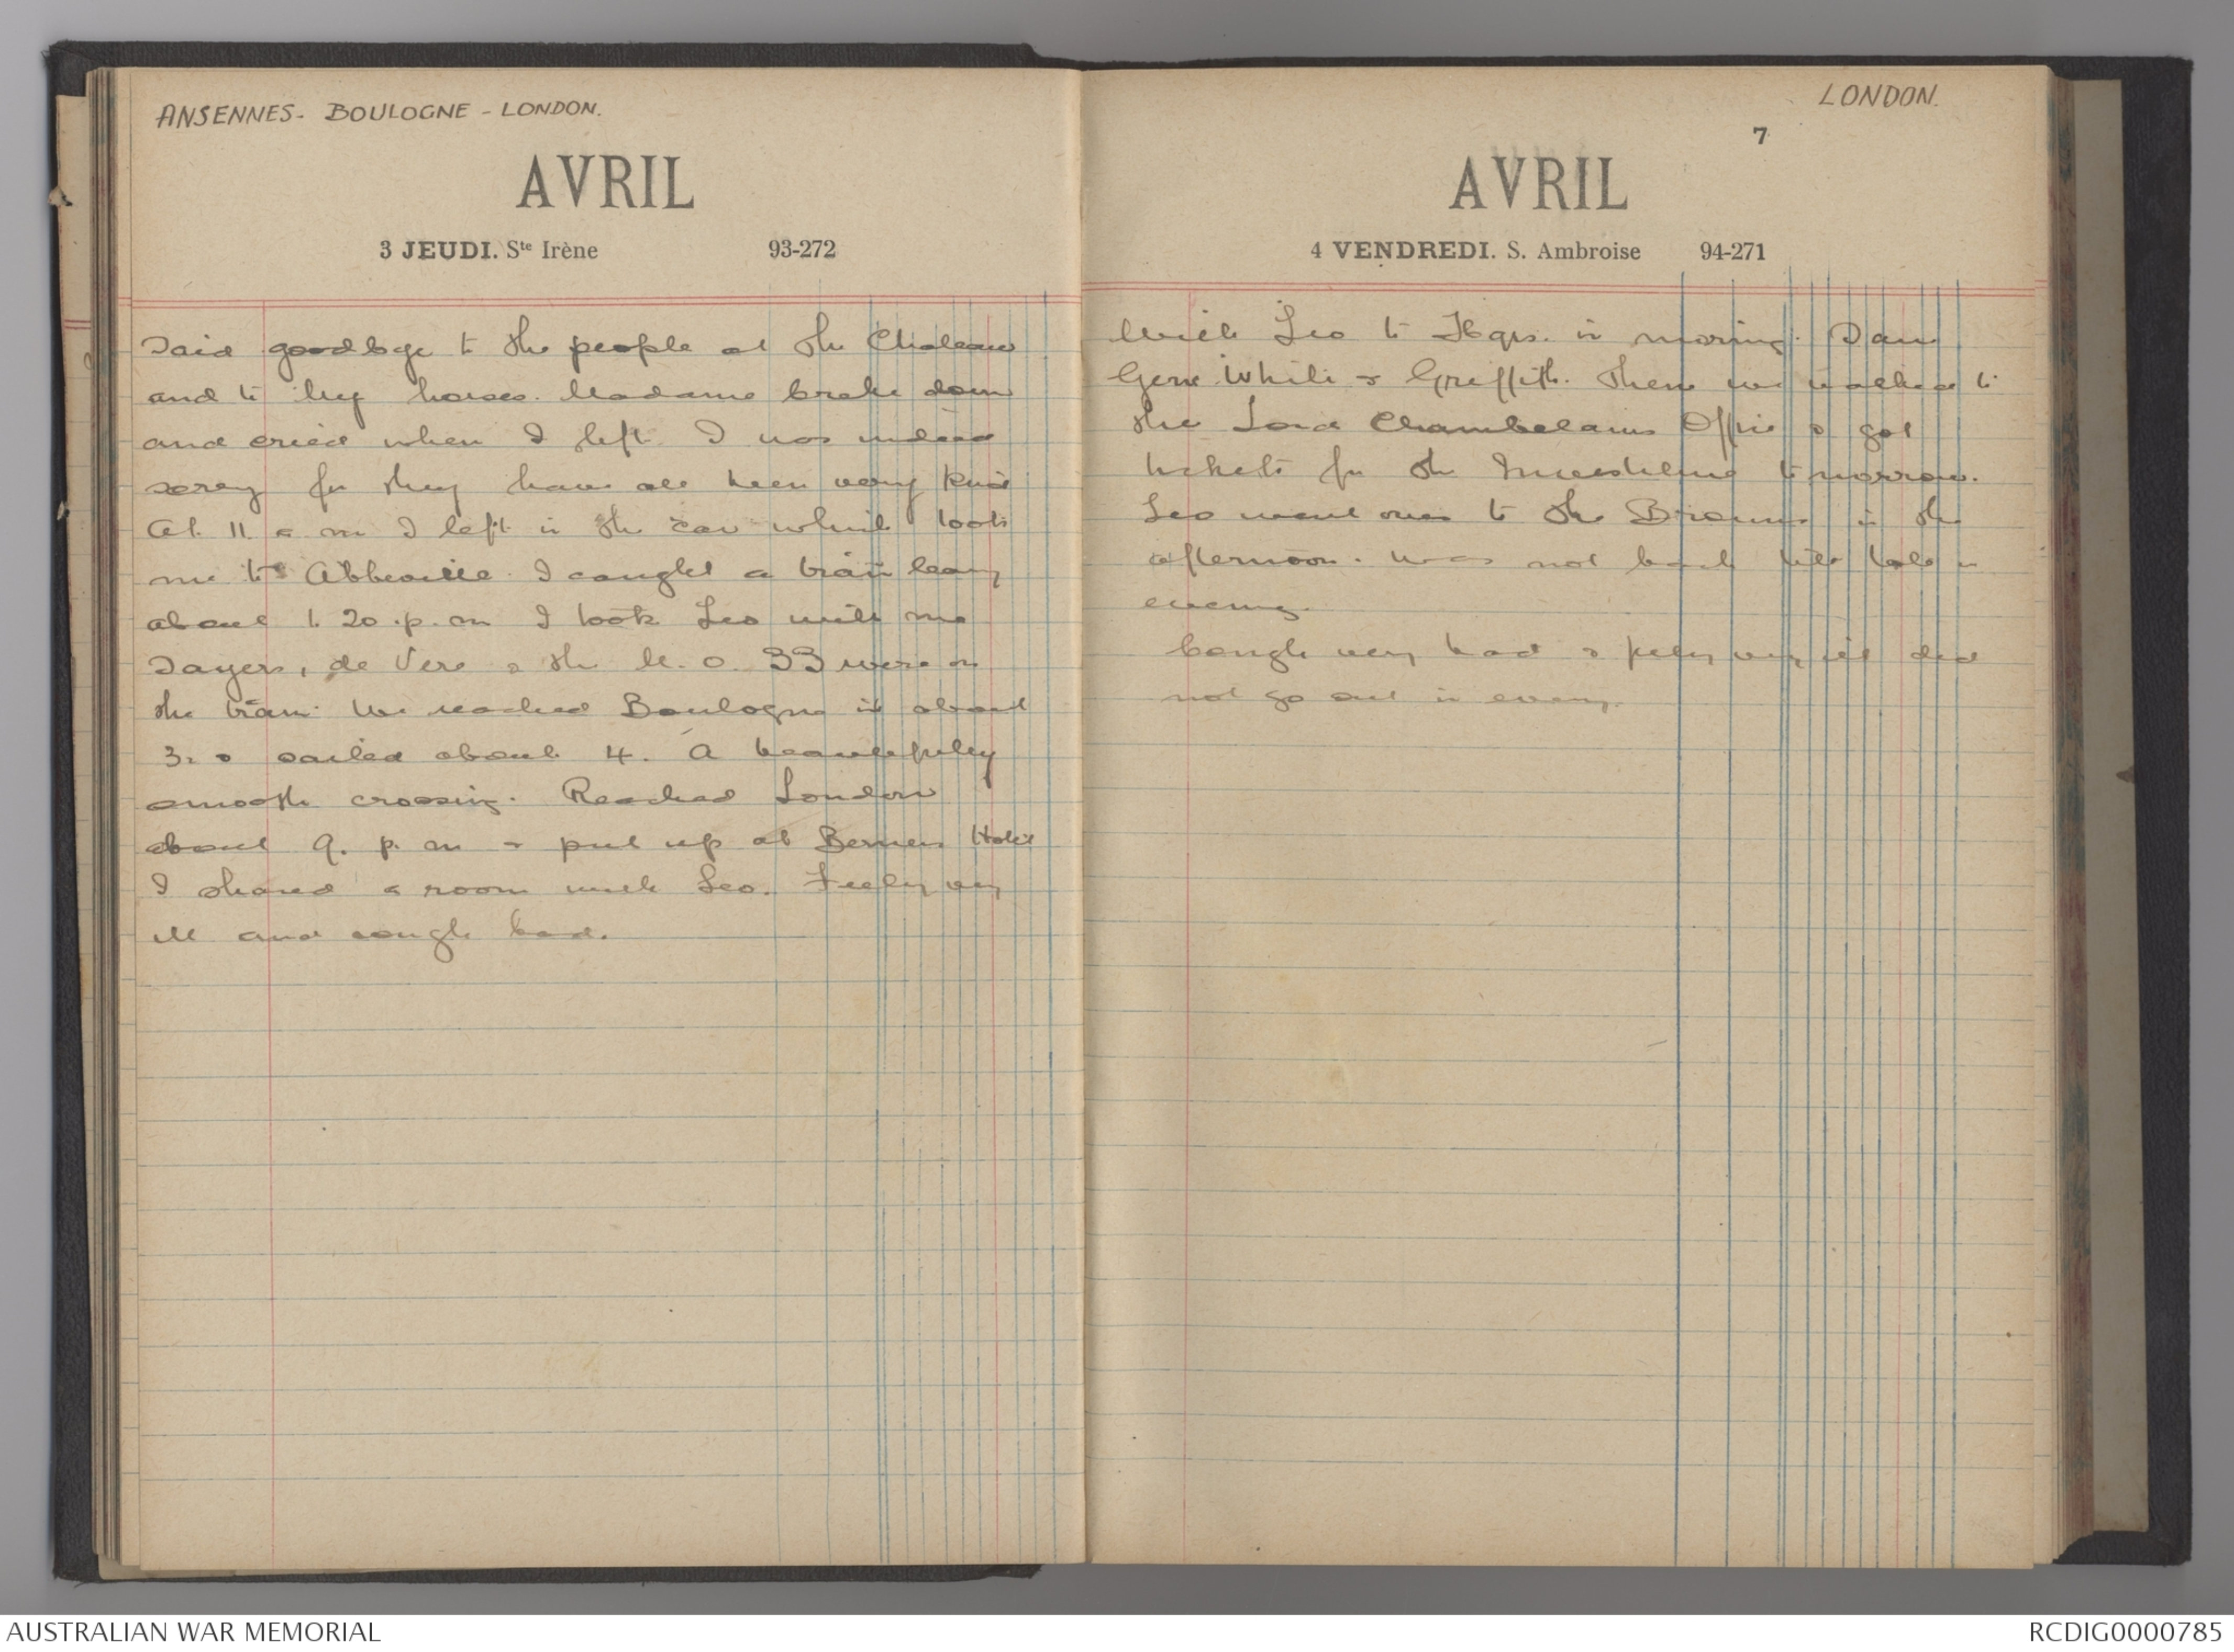 ANSENNES - BOULOGNE - LONDON.
AVRIL
3 JEUDI. Ste Irène 93-272
Said goodbye to the people at the Chateau
and to my horses. Madame broke down
and cried when I left. I was indeed
sorry for they have all been very kind
At 11 a m I left in the car which took
me to Abbeville. I caught a train leaving
about 1.20.p.m I took Leo with me
Sayers, de Vere & the M.O. 33 were on
the train. We reached Boulogne at about
3. & sailed about 4. A beautifully
smooth crossing. Reached London
about 9. p. m & put up at Berners Hotel
I shared a room with Leo. Feeling very
ill and cough bad.
LONDON.
7
AVRIL
4 VENDREDI. S. Ambroise 94-271
With Leo to Hqrs. in morning. Saw
Genl White & Griffith. Then we walked to
the Lord Chamberlains Office & got
tickets for the Investiture tomorrow.
Leo went over to the Browns in the
afternoon. Was not back till late in
evening.
Cough very bad & feeling very ill did
not go out in evening.
AUSTRALIAN WAR MEMORIAL
RCDIG0000785